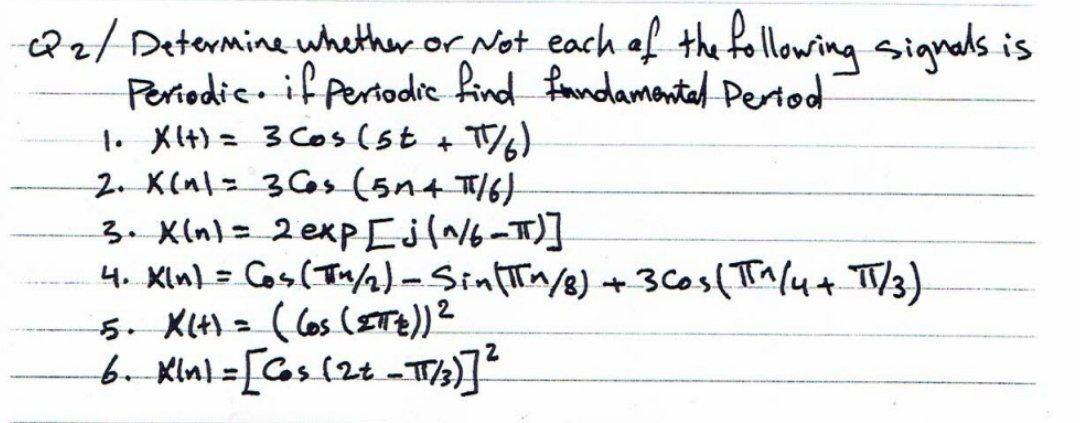 Q2/ Determine whether or Not each of the following signals is
Periodic. if Periodic find fundamental Period
1. X(t) = 3 Cos (5t + π/6)
2. X(n) = 3 Cos (5n + π/6)
3. X(n) = 2 exp [j(n/6 - π)]
4. X(n) = Cos(πn/2) - Sin(πn/8) + 3 Cos(πn/4 + π/3)
5. X(t) = (Cos (2πt))²
6. X(n) = [Cos (2t - π/3)]²